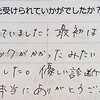 を受けられていかがでしたか？
ていました！最初は
ックがかかったみたい
した。優しい診断
本当にありがとうご